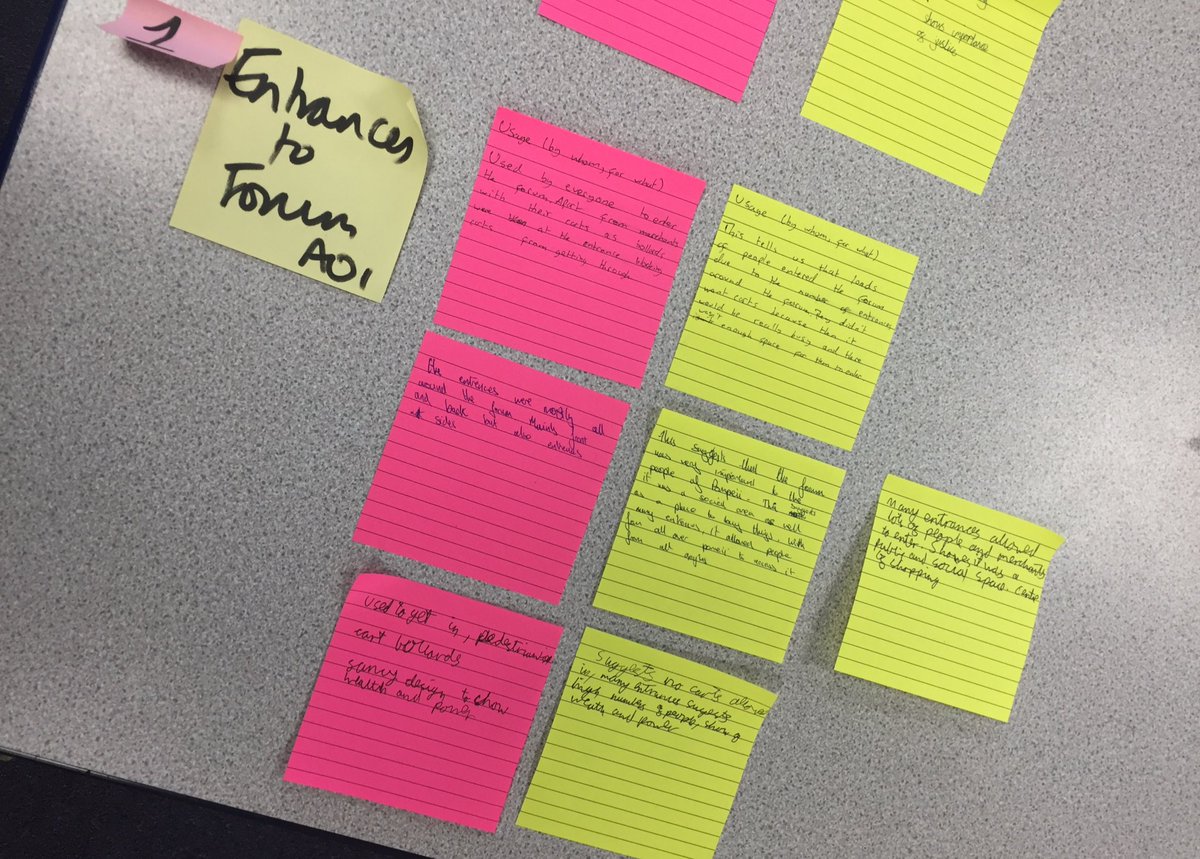 1
Entrances
to
Forum
AO1
shows importance
of justice
Usage (by whom, for what)
Used by everyone to enter
the forum. Apart from merchants
with their carts as bollards
were at the entrance blocking
carts from getting through
Usage (by whom, for what)
This tells us that loads
of people entered the forum
due to the number of entrances
around the forum. They didn't
want carts because then it
would be really busy and there
wasn't enough space for them to enter
the entrences were mostly all
around the forum Mainly front
and back but also
sides
This suggests that the forum
was very important to the
people of Pompeii. This suggests
it was a social area as well
as a place to buy things. With
many it allowed people
from all over to access it
from all angles
many entrances allowed
lots of people and merchants
to enter. Shows it was a
Public and social space. Centre
of shopping
Used to get in, pedestrian
cart bollards
fancy design to show
wealth and power
Suggests no carts allowed
in, many entrances suggests
high number of people, showing
wealth and power